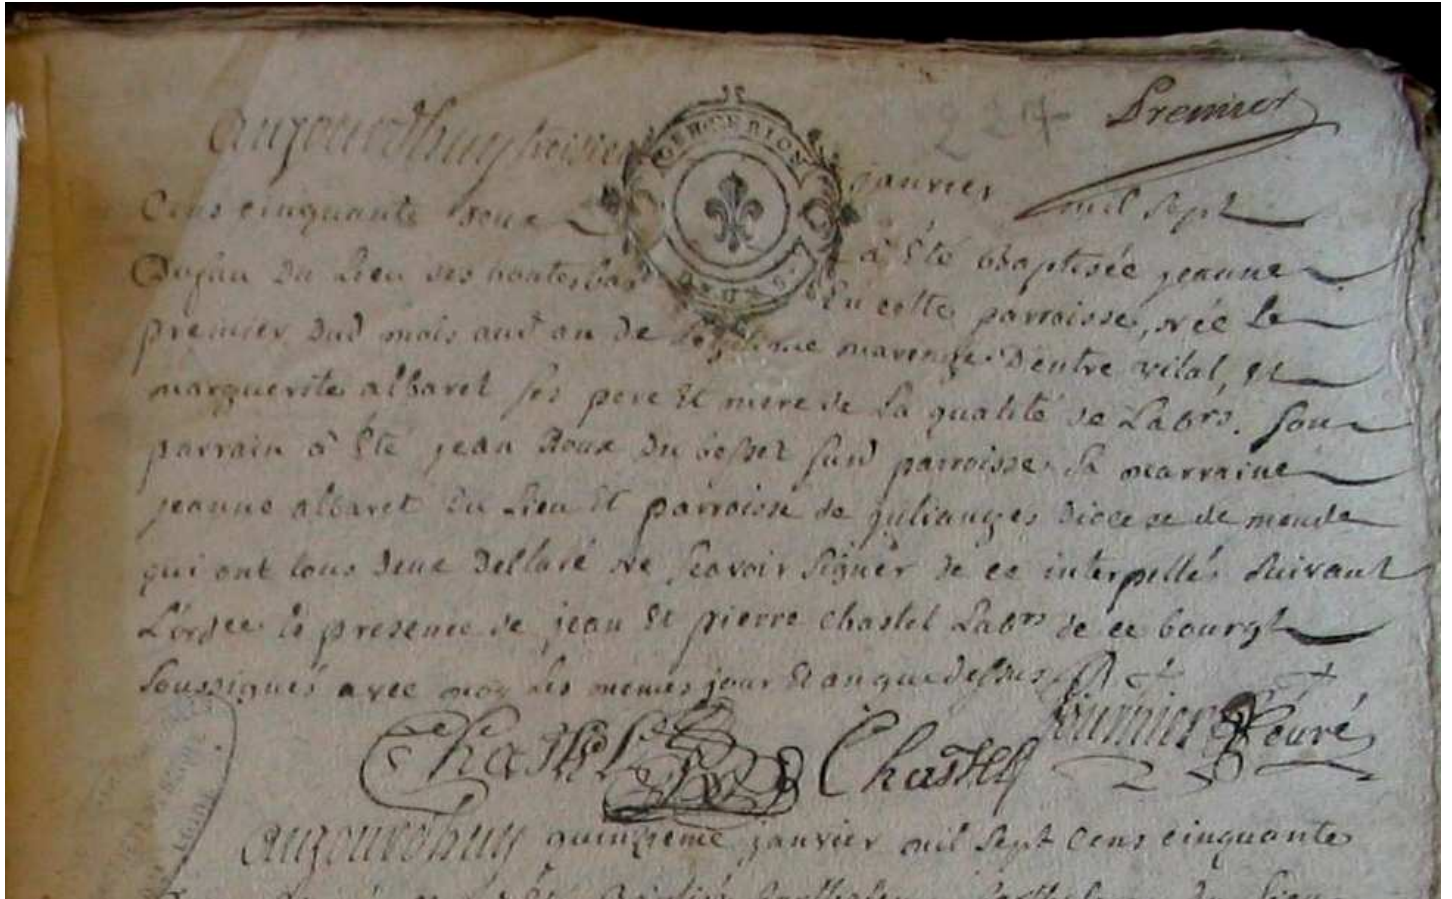 224
Premier
aujourdhuy troisie janvier mil sept
Cens cinquante douze a été baptisée jeanne
Dufau du Lieu des hontesbas En cette parroisse, née Le
premier dud mois aud an de Legitime mariage Dentre vital, et
marguerite albaret ses pere Et mere de La qualité de Labrs. Son
parrain a Eté jean Roux du besset susd parroisse Sa marraine
jeanne albaret du Lieu Et parroisse de julianges Diocese de mende
qui ont tous deux Dellaré ne sçavoir signer de ce interpellés suivant
L'ordce En presence de jean Et pierre Chastel Labrs de ce bourgt
soussignés avec moy Les memes jour Et an que dessus
Chastel Chastel fournier Curé
aujourdhuy quinzieme janvier mil sept Cens cinquante